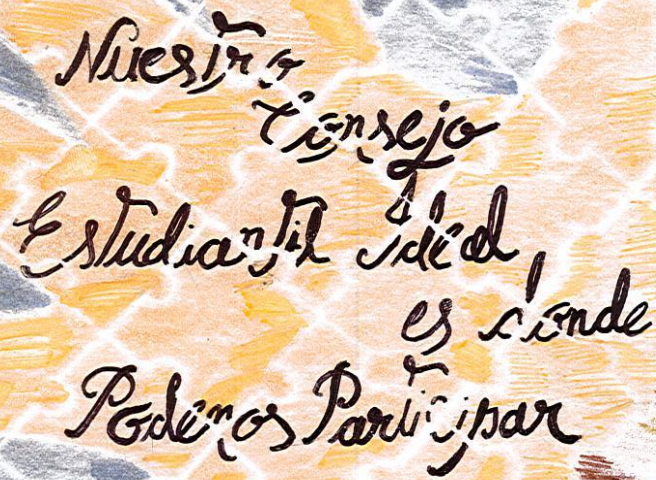 Nuestro
Consejo
Estudiantil ideal,
es donde
Podemos Participar